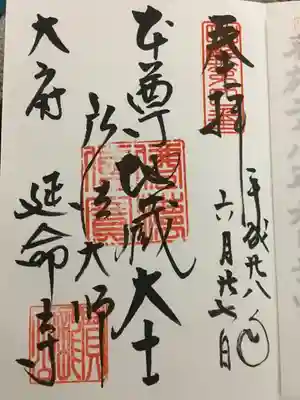 奉拝
平成廿八年
六月廿七日
本尊地蔵大士
弘法大師
大府
延命寺